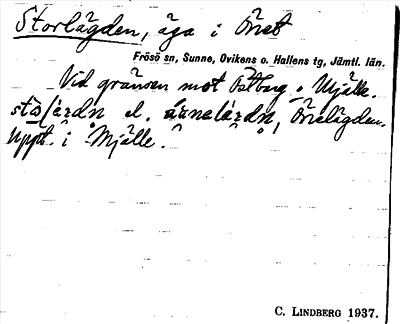 Storlägden, äga i Önet
Frösö sn, Sunne, Ovikens o. Hallens tg, Jämtl. län.
Vid gränsen mot Östberg o. Mjälle.
el. Önelägden.
Uppt. i Mjälle.
C. LINDBERG 1937.